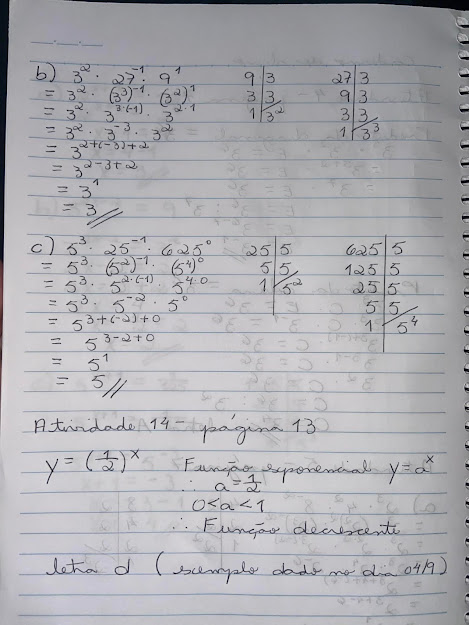 b) 3² · 27⁻¹ · 9¹
= 3² · (3³)⁻¹ · (3²)¹
= 3² · 3³·⁽⁻¹⁾ · 3²·¹
= 3² · 3⁻³ · 3²
= 3²⁺⁽⁻³⁾⁺²
= 3²⁻³⁺²
= 3¹
= 3
9 | 3
3 | 3
1 | 3²
27 | 3
9 | 3
3 | 3
1 | 3³
c) 5³ · 25⁻¹ · 625⁰
= 5³ · (5²)⁻¹ · (5⁴)⁰
= 5³ · 5²·⁽⁻¹⁾ · 5⁴·⁰
= 5³ · 5⁻² · 5⁰
= 5³⁺⁽⁻²⁾⁺⁰
= 5³⁻²⁺⁰
= 5¹
= 5
25 | 5
5 | 5
1 | 5²
625 | 5
125 | 5
25 | 5
5 | 5
1 | 5⁴
Atividade 14 - página 13
y = (1/2)ˣ Função exponencial y = aˣ
∴ a = 1/2
0 < a < 1
∴ Função decrescente
letra d (exemplo dado no dia 04/9)